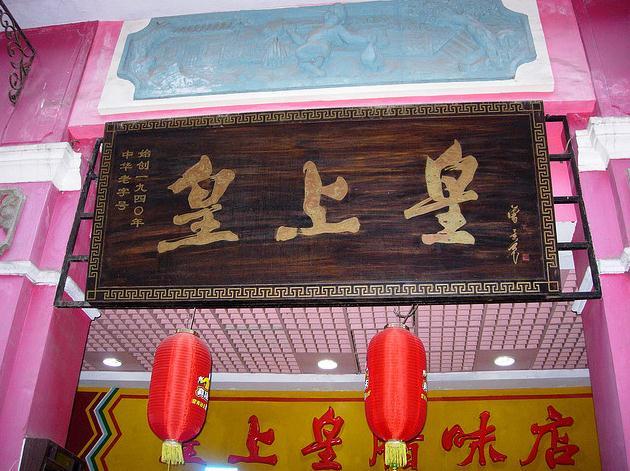 始创一九四〇年
中华老字号
皇上皇
皇上皇腊味店